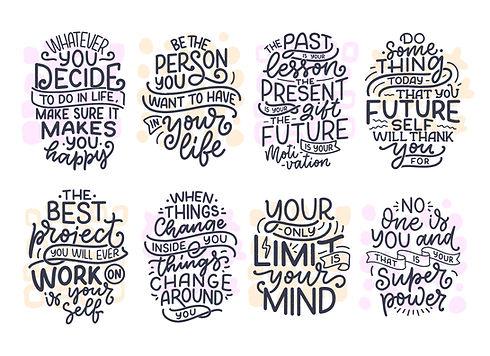 WHATEVER
YOU
DECIDE
TO DO IN LIFE,
MAKE SURE IT
MAKES
YOU
happy
BE THE
PERSON
YOU
WANT TO HAVE
IN your
life
THE
PAST
IS YOUR
lesson
THE
PRESENT
IS YOUR gift
THE
FUTURE
IS YOUR
Moti-
vation
DO
some
THING
TODAY
THAT YOU
FUTURE
SELF
WILL THANK
You
FOR
THE
BEST
project
YOU WILL EVER
WORK ON
is your
self
WHEN
THINGS
Change
INSIDE YOU
things
CHANGE
AROUND
YOU
YOUR
ONLY
LIMIT
IS
your
MIND
NO
One is
YOU and
THAT IS YOUR
Super
power